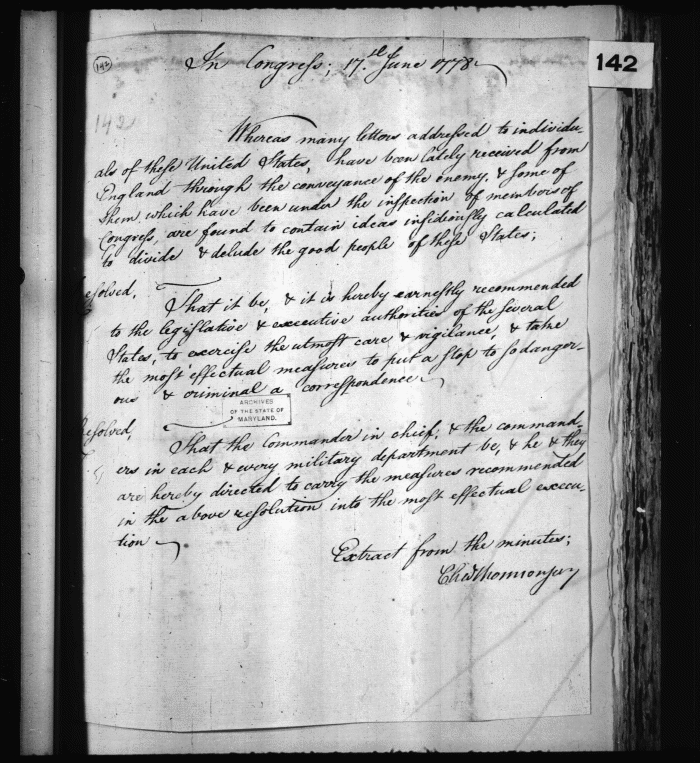 142
142
In Congress, 17th June 1778
142
Whereas many letters addressed to individu-
als of these United States, have been lately received from
England through the conveyance of the enemy, & some of
them which have been under the inspection of members of
Congress, are found to contain ideas insidiously calculated
to divide & delude the good people of these States;
esolved,
That it be, & it is hereby earnestly recommended
to the legislative & executive authorities of the several
States, to exercise the utmost care & vigilance, & take
the most effectual measures to put a stop to so danger-
ous & criminal a correspondence
ARCHIVES
OF THE STATE OF
MARYLAND.
esolved,
That the Commander in chief, & the command-
ers in each & every military department be, & he & they
are hereby directed to carry the measures recommended
in the above resolution into the most effectual execu-
tion
Extract from the minutes;
Chas Thomson secy